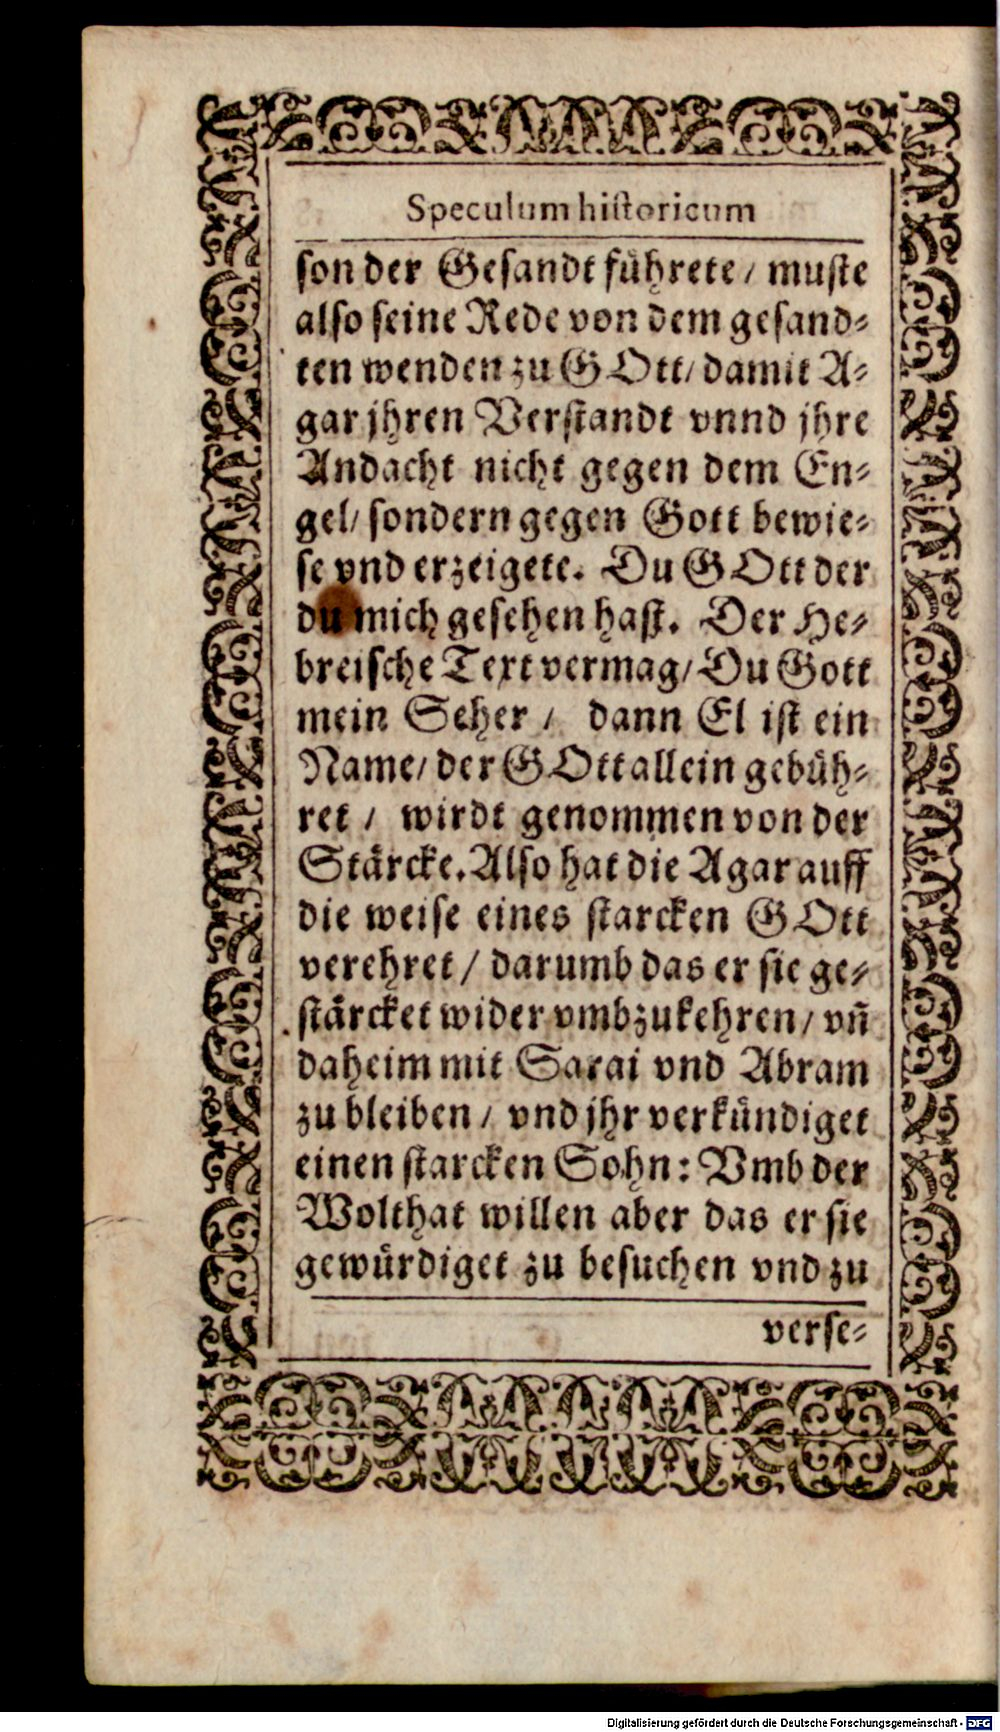 Speculum historicum
son der Gesandt führete / muste
also seine Rede von dem gesand-
ten wenden zu GOtt / damit A-
gar jhren Verstandt vnnd jhre
Andacht nicht gegen dem En-
gel / sondern gegen Gott bewie-
se vnd erzeigete. Du GOtt der
du mich gesehen hast. Der He-
breische Text vermag / Du Gott
mein Seher / dann El ist ein
Name / der GOtt allein gebüh-
ret / wirdt genommen von der
Stärcke. Also hat die Agar auff
die weise eines starcken GOtt
verehret / darumb das er sie ge-
stärcket wider vmbzukehren / vñ
daheim mit Sarai vnd Abram
zu bleiben / vnd jhr verkündiget
einen starcken Sohn: Vmb der
Wolthat willen aber das er sie
gewürdiget zu besuchen vnd zu
verse-
Digitalisierung gefördert durch die Deutsche Forschungsgemeinschaft - DFG